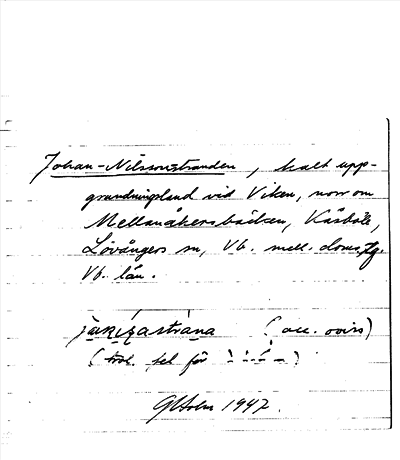 Johan-Nilssonstranden, kalt upp-
grundningsland vid Viken, norr om
Mellanåkersbäcken, Kåsböle,
Lövångers sn, Vb. mell. doms.
Vb. län.
(acc. oviss)
(trol. fel för
GHolm 1947.